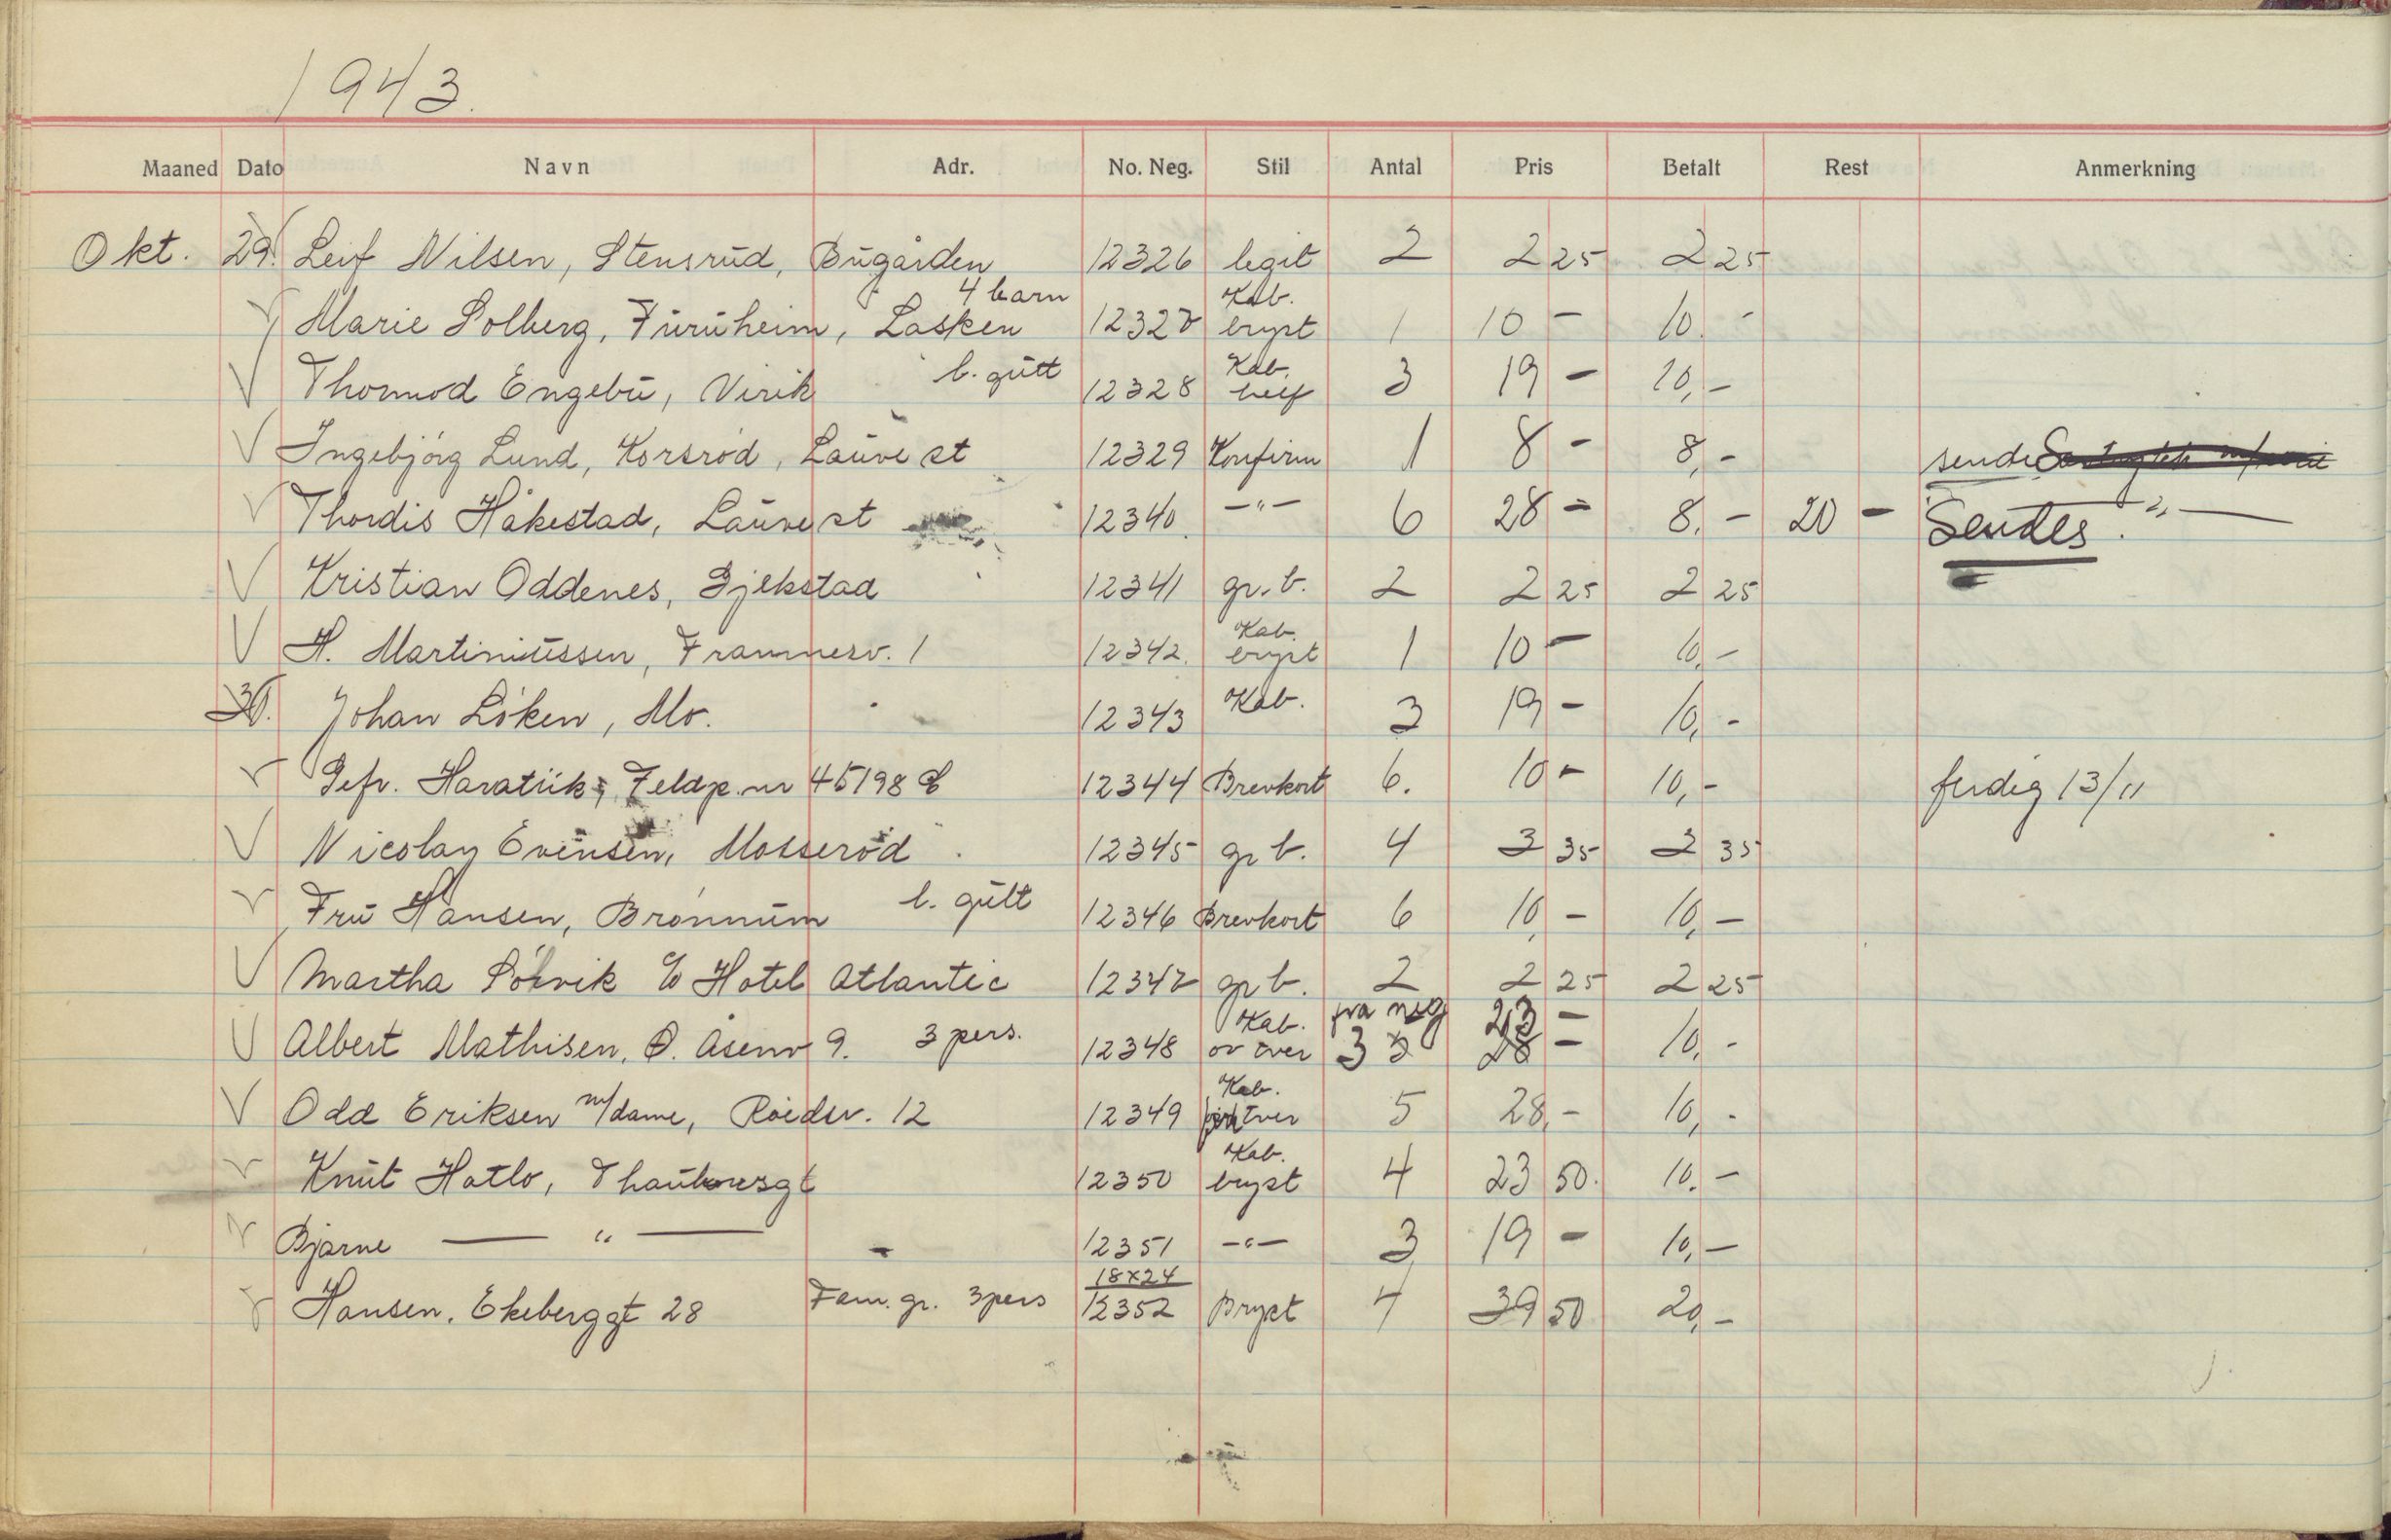 1943.
Maaned Dato Navn Adr. No. Neg. Stil Antal Pris Betalt Rest Anmerkning
Okt. 29. Leif Nilsen, Stensrud, Bugården 12326 legit 2 2 25 2 25
4 barn Kab.
Marie Solberg, Furuheim, Lasken 12327 bryst 1 10 - 10. -
b. gutt Kab.
Thormod Engebu, Virik 12328 helf 3 19 - 10, -
Ingebjörg Lund, Korsröd, Lauve st 12329 Konfirm 1 8 - 8, - sendes
Thordis Håkestad, Lauve st 12340. -"- 6 28 - 8. - 20 - Sendes. -"-
Kristian Oddenes, Gjekstad 12341 gr. b. 2 2 25 2 25
Kab.
H. Martiniussen, Framnesv. 1 12342. bryst 1 10 - 10, -
30. Johan Löken, Mo. 12343 Kab. 3 19 - 10, -
Gefr. Haratük, Feldp. nr 45198 12344 Brevkort 6. 10 - 10, - ferdig 13/11
Nicolay Evensen, Mosseröd 12345 gr b. 4 3 35 3 35
Fru Hansen, Brönnum b. gutt 12346 Brevkort 6 10, - 10, -
Martha Sörvik c/o Hotel Atlantic 12347 gr b. 2 2 25 2 25
Kab. fra neg 23 -
Albert Mathisen, Ø. Åsenv 9. 3 pers. 12348 ov tver 3 28 - 10, -
Kab.
Odd Eriksen m/dame, Roedsv. 12 12349 tver 5 28, - 10, -
Kab.
Knut Hatlo, Thaulowsgt 12350 bryst 4 23 50. 10. -
Bjarne -"- 12351 -"- 3 19 - 10, -
18x24
Hansen, Ekeberggt 28 Fam. gr. 3 pers 12352 Bryst 4 39 50 20, -